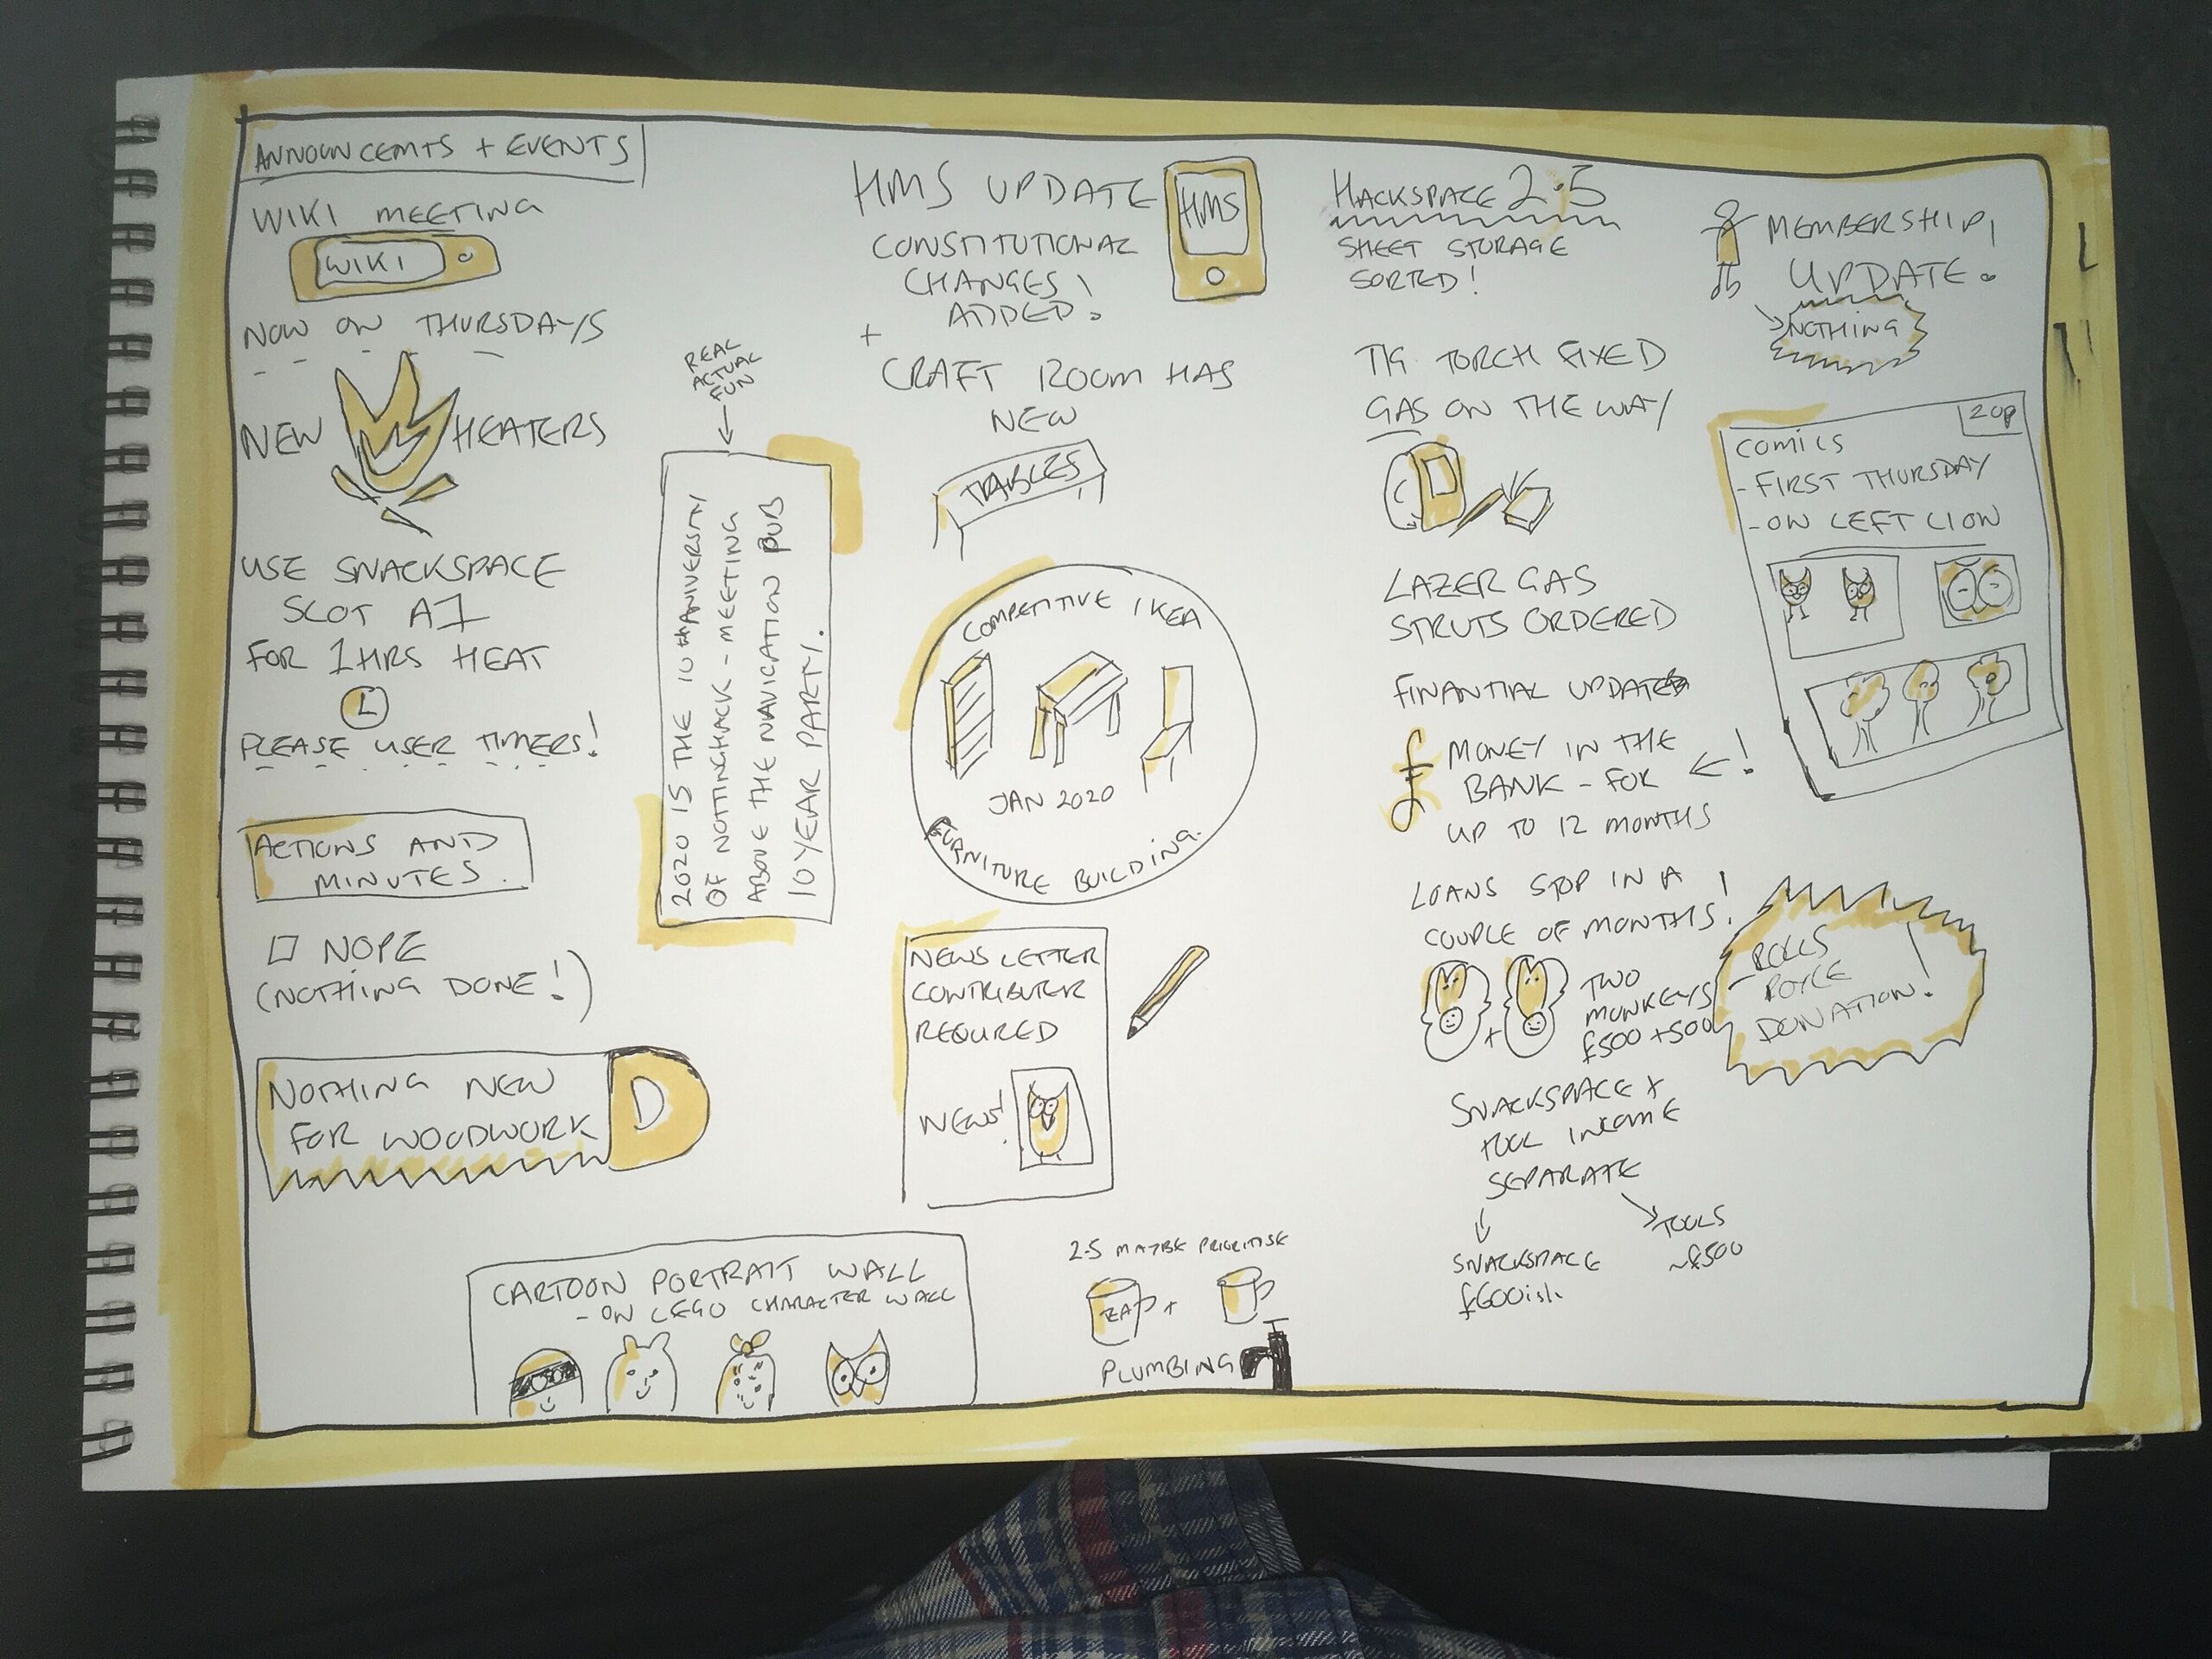 ANNOUNCEMTS + EVENTS
WIKI MEETING
WIKI
NOW ON THURSDAYS
NEW HEATERS
USE SNACKSPACE
SLOT A1
FOR 1HRS HEAT
PLEASE USER TIMERS!
ACTIONS AND
MINUTES.
NOPE
(NOTHING DONE!)
NOTHING NEW
FOR WOODWORK
D
REAL
ACTUAL
FUN
2020 IS THE 10th ANIVERSTAY
OF NOTTINGHACK - MEETING
ABOVE THE NAVIGATION PUB
10 YEAR PARTY.
HMS UPDATE
HMS
CONSTITUTIONAL
CHANGES
ADDED!
+
CRAFT ROOM HAS
NEW
TABLES
COMPETITIVE IKEA
JAN 2020
FURNITURE BUILDING.
NEWS LETTER
CONTRIBUTER
REQURED
NEWS!
CARTOON PORTRAIT WALL
- ON LEGO CHARACTER WALL
2.5 MAYBE PRIORITISE
+
PLUMBING
HACKSPACE 2.5
SHEET STORAGE
SORTED!
TIG TORCH FIXED
GAS ON THE WAY
LAZER GAS
STRUTS ORDERED
FINANTIAL UPDATE
£ MONEY IN THE
BANK - FOR ← !
UP TO 12 MONTHS
LOANS STOP IN A
COUPLE OF MONTHS!
+
TWO
MONKEYS
£500 + 500
ROLLS
ROYCE
DONATION!
SNACKSPACE +
TOOL INCOME
SEPARATE
SNACKSPACE
£600ish
TOOLS
~£500
MEMBERSHIP
UPDATE.
NOTHING
20p
COMICS
- FIRST THURSDAY
- ON LEFT LION